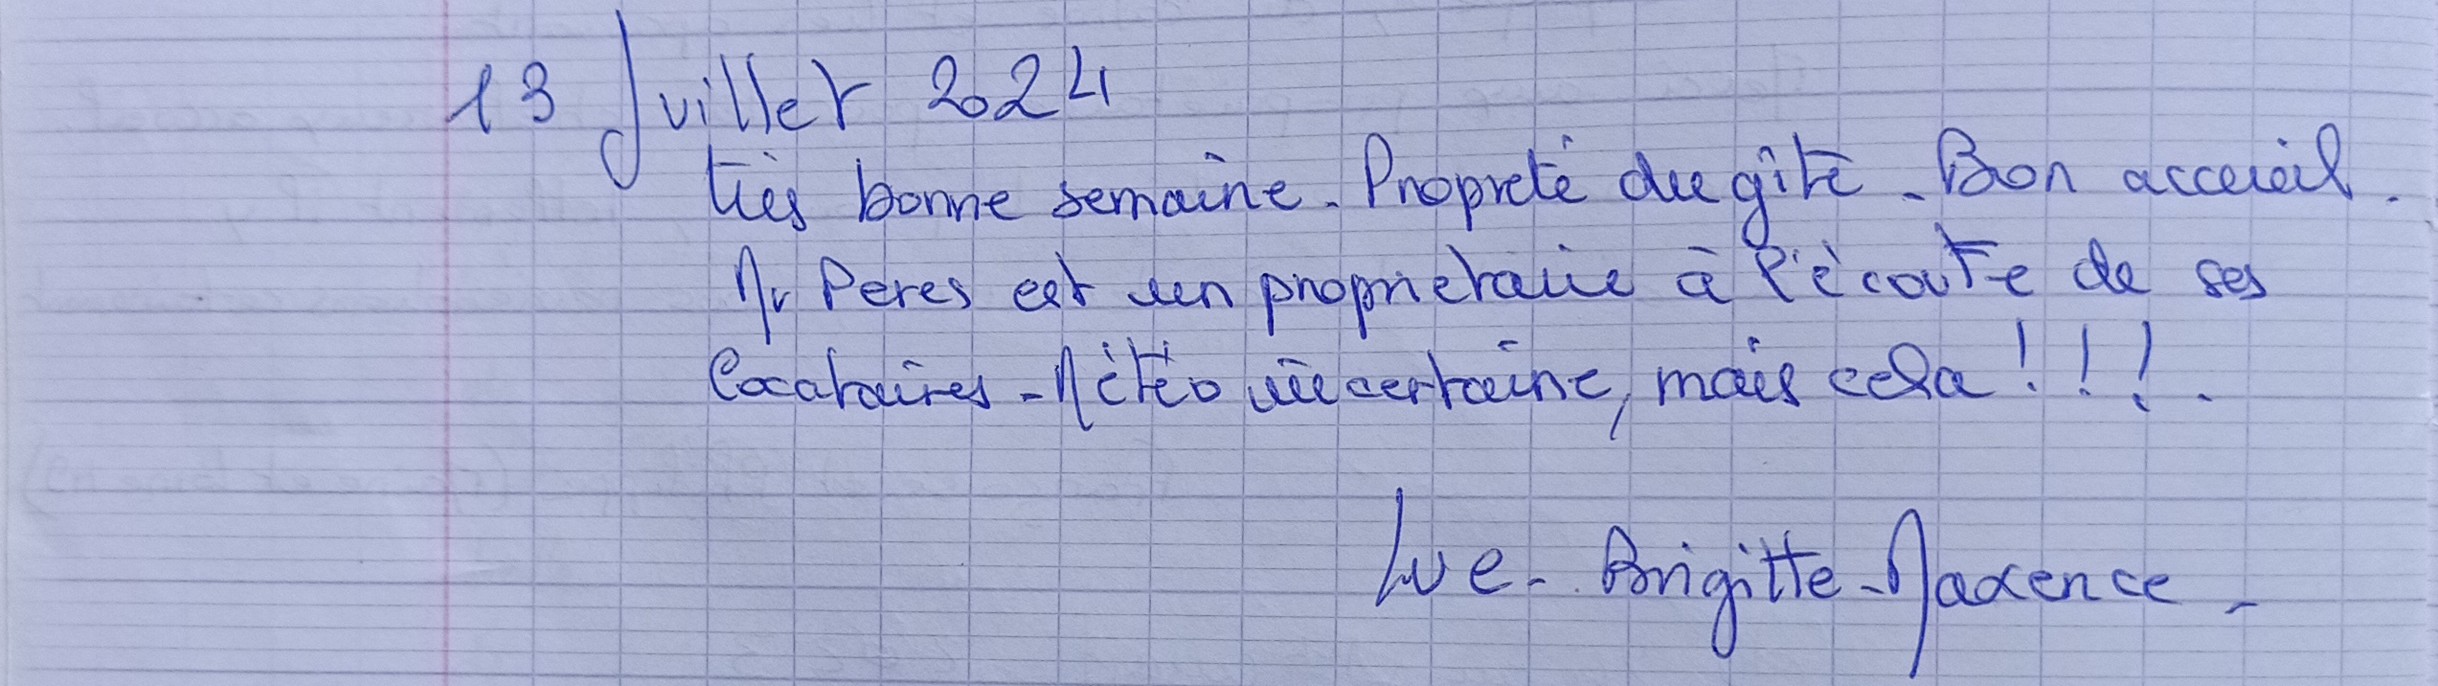 13 Juillet 2024
très bonne semaine. Propreté du gîte. Bon accueil.
Mr Peres est un propriétaire à l'écoute de ses
locataires - Météo incertaine, mais cela ! ! ! .
Brigitte - Maxence -